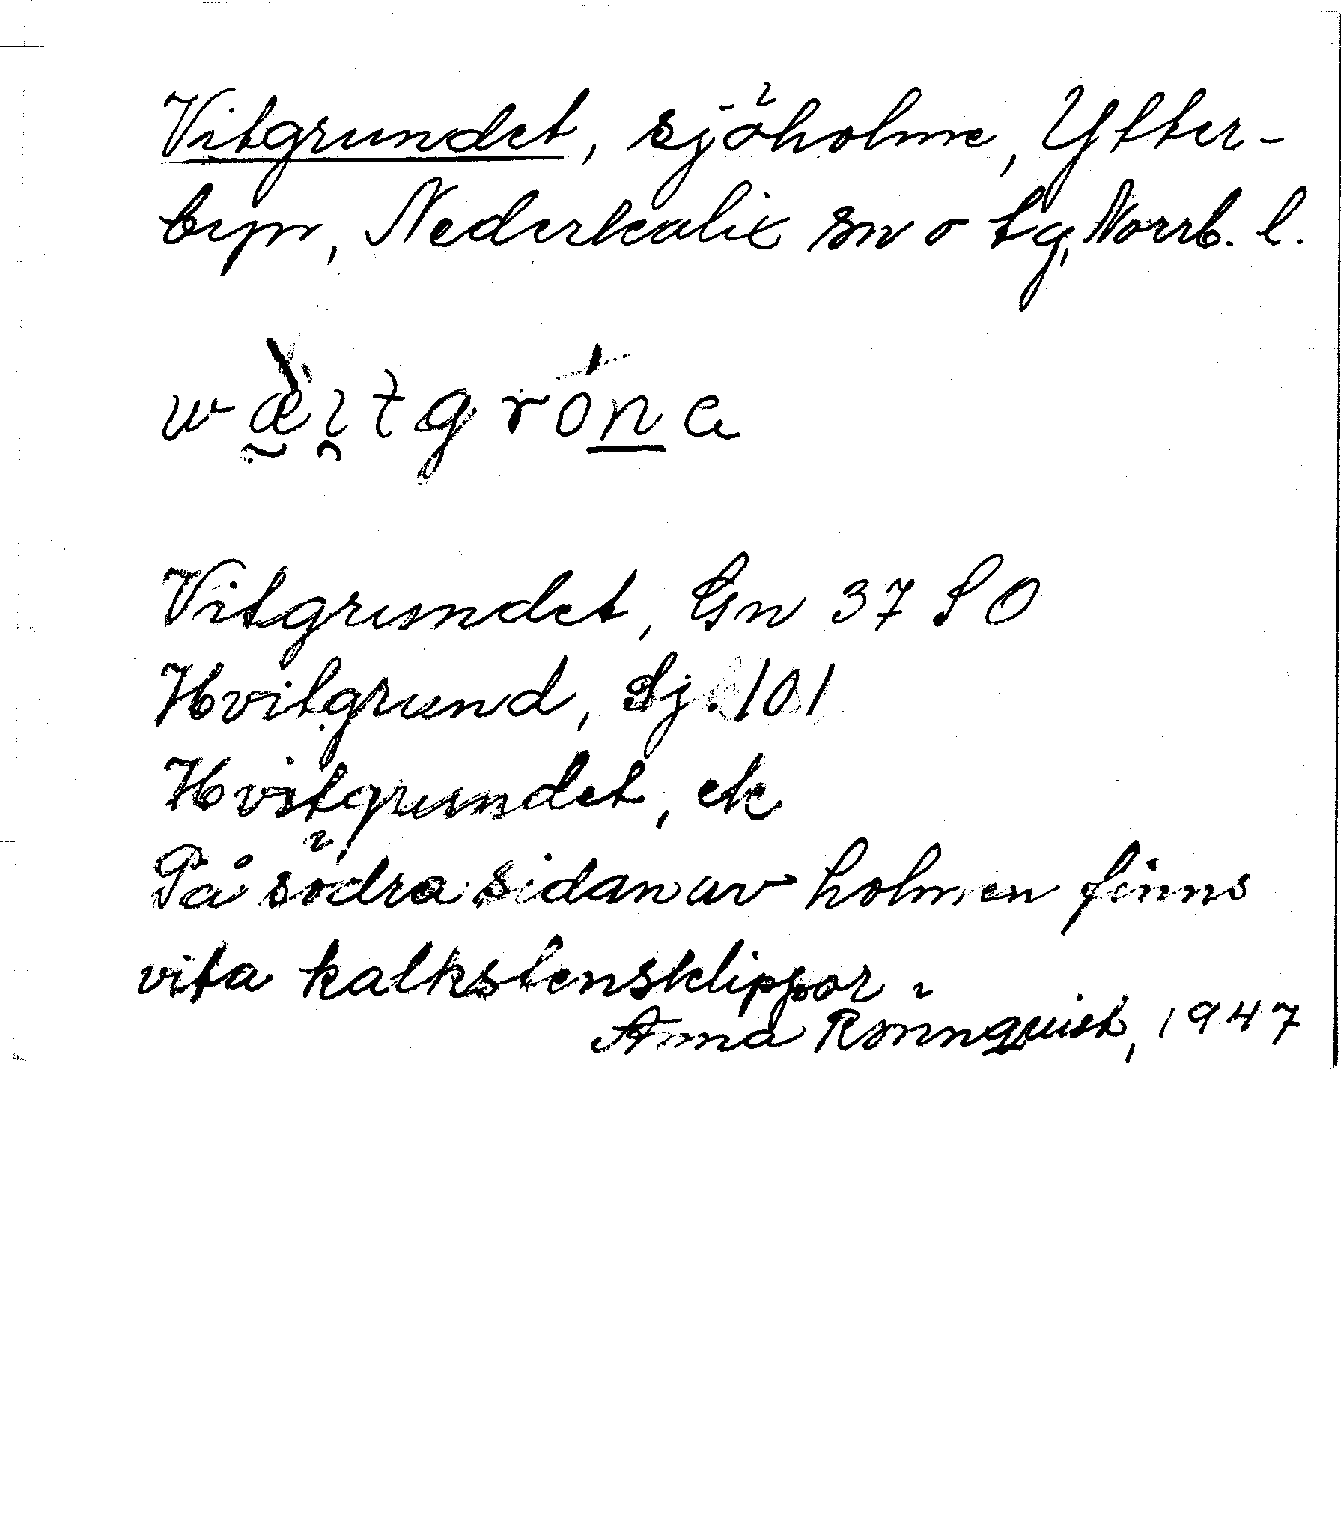 Vitgrundet, sjöholme, Ytter-
byn, Nederkalix sn o tg, Norrb. l.
wæ̀ɩtgróna
Vitgrundet, Gn 37 SO
Hvitgrund, Sj. 101
Hvitgrundet, ek
På södra sidan av holmen finns
vita kalkstensklippor
Anna Rönnquist, 1947